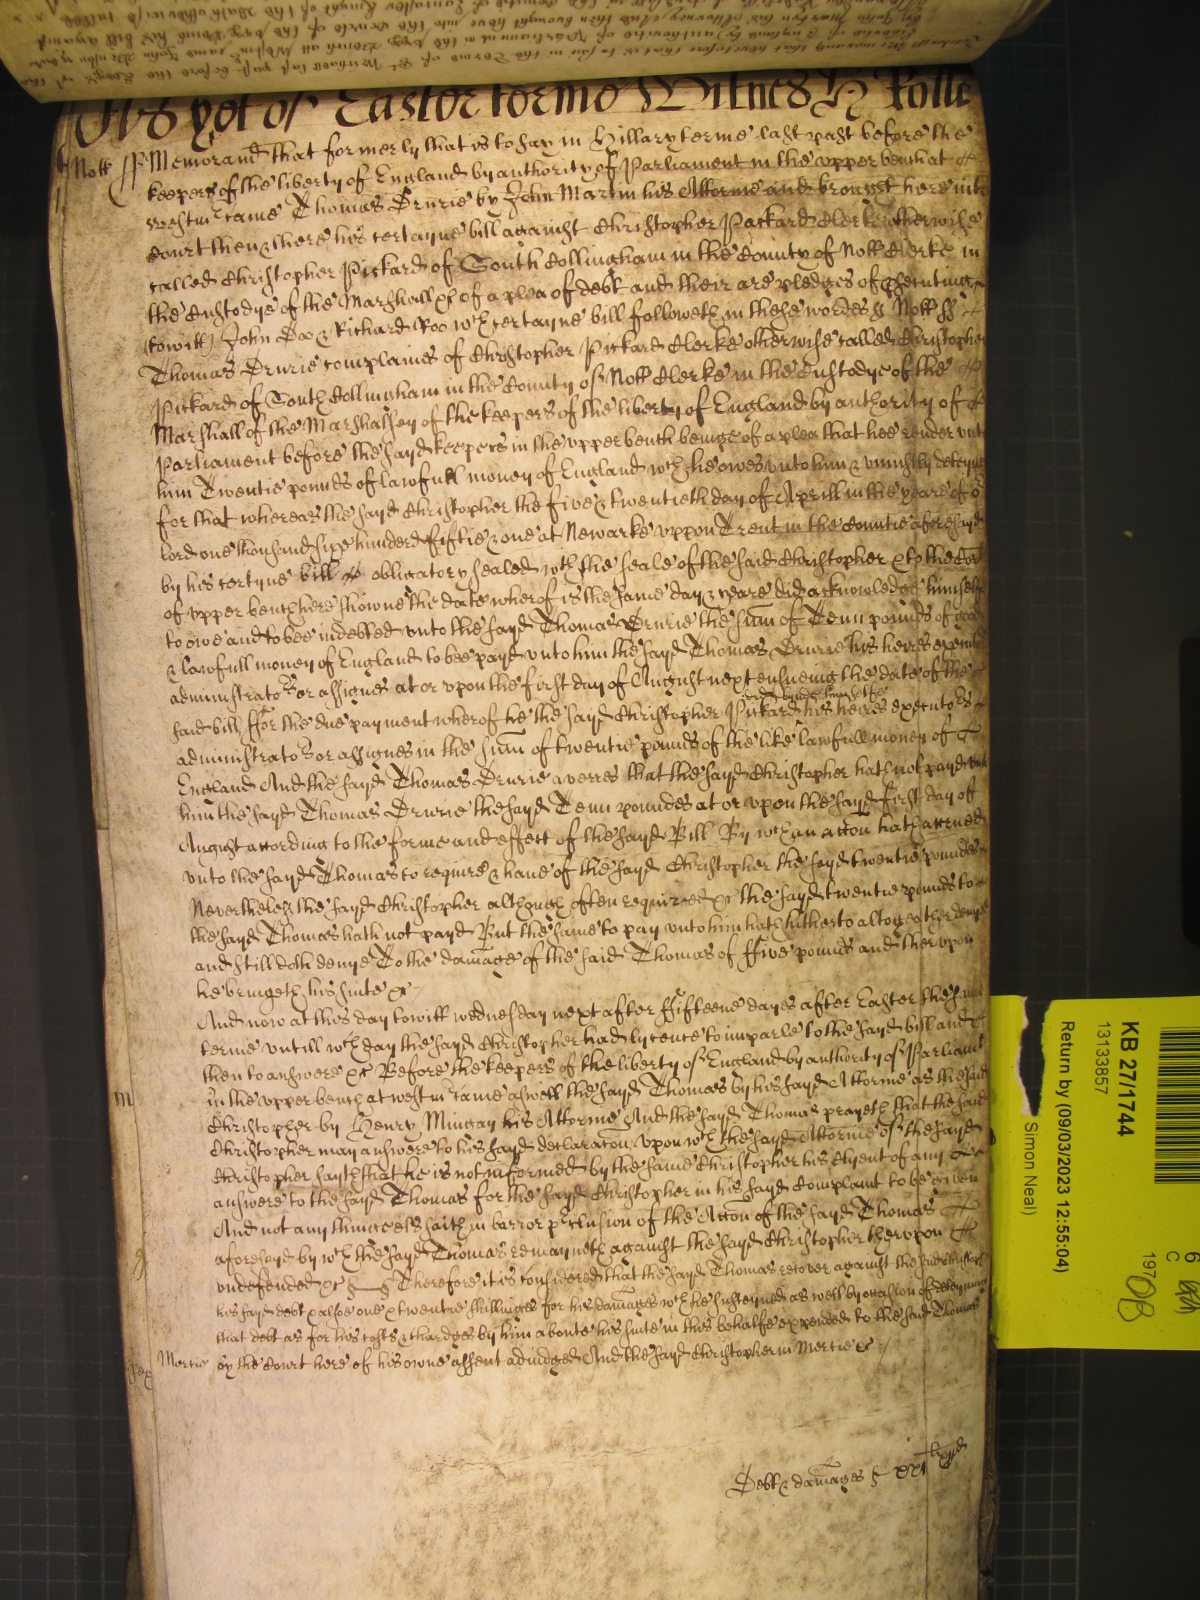 As yet of Easter terme Witnes H Rolle
Nott ss Memorand that formerly that is to say in Hillary terme last past before the
keepers of the liberty of England by authority of Parliament in the upper bench at
Westmr came Thomas Drurie by John Martin his Attorne and brought here into
Court then & there his certayne bill against Christopher Pickard Clerke otherwise
called Christopher Pickard of South Collingham in the County of Nott Clerke in
the Custodye of the Marshall &c of a plea of debt and their are pledges of prosecuting
(towitt) John Doo & Richard Roo wch certayne bill followeth in these wordes ss Nott ss
Thomas Drurie complaines of Christopher Pickard Clerke otherwise called Christopher
Pickard of South Collingham in the County of Nott Clerke in the Custodye of the
Marshall of the Marshalsey of the keepers of the liberty of England by authority of
Parliament before the sayd keepers in the upper bench beinge of a plea that hee render unto
him Twentie pounds of lawfull money of England wch he owes unto him & uniustly deteynes
for that whereas the sayd Christopher the five & twentieth day of Aprill in the yeare of or
lord one thousand six hundred fiftie & one at Newarke uppon Trent in the Countie aforesayd
by his certyne bill obligatory sealed wth the seale of the said Christopher & to the Court
of upper bench here showne the date wherof is the same day & yeare did acknowledge himselfe
to owe and to bee indebted unto the sayd Thomas Drurie the sum of Tenn pounds of good
& lawfull money of England to bee payd unto him the sayd Thomas Drurie his heires executors
administrators or assignes at or upon the first day of August next ensueing the date of the
said bill ffor the due payment wherof he the sayd Christopher Pickard did bynde himselfe his heires executors
administrators or assignes in the sum of twentie pounds of the like lawfull money of
England And the sayd Thomas Drurie averres that the sayd Christopher hath not payd unto
him the sayd Thomas Drurie the sayd Tenn poundes at or upon the sayd first day of
August according to the forme and effect of the sayd Bill By wch an accon hath accrued
unto the sayd Thomas to require & have of the sayd Christopher the sayd twentie poundes
Neverthelesse the sayd Christopher although often required &c the sayd twentie pounds to
the sayd Thomas hath not payd But the same to pay unto him hath hitherto altogeather denyed
and still doth denye To the damage of the said Thomas of ffive pounds and therupon
he bringeth his suite &c
And now at this day towitt wednesday next after ffifteene dayes after Easter the same
terme untill wch day the sayd Christopher had lycence to imparle to the sayd bill and
then to answere &c Before the keepers of the liberty of England by authority of Parliamt
in the upper bench at westmr came aswell the sayd Thomas by his sayd Attorne as the said
Christopher by Henry Mingay his Attorne And the sayd Thomas prayeth that the said
Christopher may answere to his sayd declaracon upon wch the sayd Attorne of the sayd
Christopher sayth that he is not informed by the same Christopher his Clyent of any
answere to the sayd Thomas for the sayd Christopher in his sayd Complaint to be given
And not any thing els saith in barr or preclusion of the Accon of the sayd Thomas
aforesayd by wch the sayd Thomas remayneth against the sayd Christopher therupon
undefended &c Therefore it is considered that the sayd Thomas recover against the
his sayd debt & alsoe one & twentie shillinges for his damages wch he susteyned as well by occasion of deteyning
that debt as for his costs & chardges by him aboute his suite in this behalfe expended to the said Thomas
Mercie by the Court here of his owne assent adiudged And the sayd Christopher in Mercie &c
Debt & damages
KB 27/1744
13133857
Return by (09/03/2023 12:55:04)
Simon Neal)
6
C